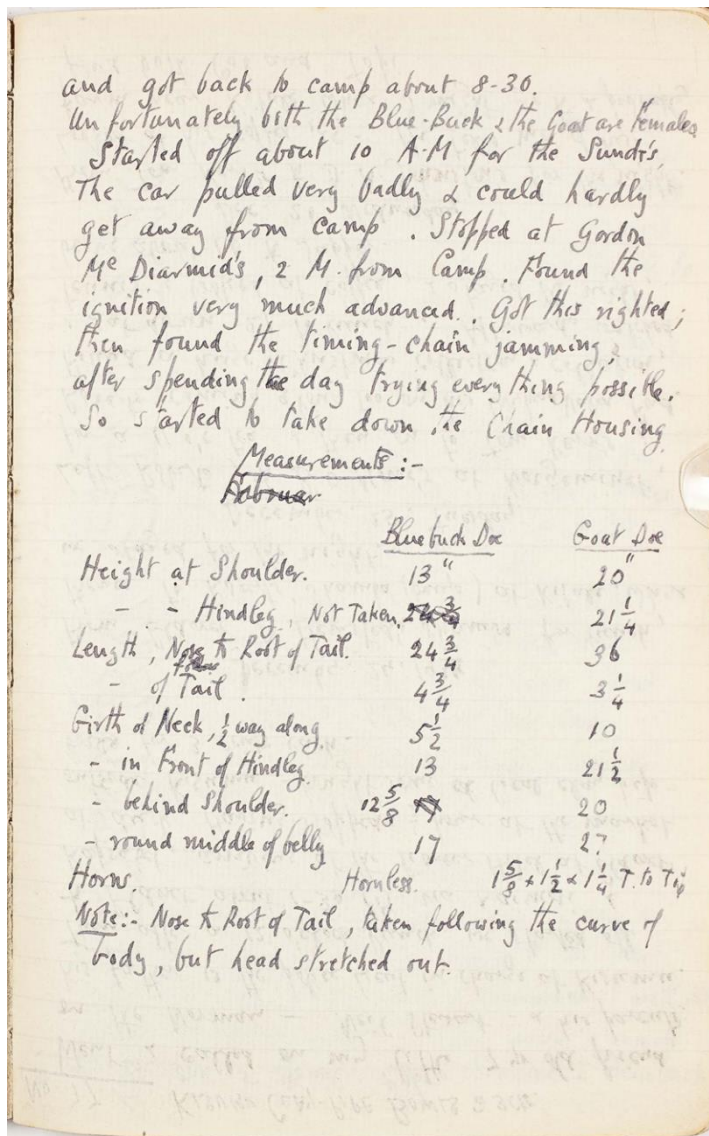 and got back to camp about 8-30.
Unfortunately both the Blue-Buck & the Goat are Females
Started off about 10 A-M for the Sundi's,
The car pulled very badly & could hardly
get away from camp. Stopped at Gordon
Mc Diarmid's, 2 M. from Camp. Found the
ignition very much advanced. Got this righted;
then found the timing-chain jamming,
after spending the day trying everything possible.
So started to take down the Chain Housing.
Measurements:-
Februar
Bluebuck Doe Goat Doe
Height at Shoulder. 13" 20"
- - Hindleg, Not Taken, 21 1/4
Length, Nose to Root of Tail. 24 3/4 36
- of Tail. 4 3/4 3 1/4
Girth of Neck, 1/2 way along 5 1/2 10
- in Front of Hindleg. 13 21 1/2
- behind Shoulder. 12 5/8 20
- round middle of belly 17
Horns. Hornless. 1 5/8 x 1 1/2 x 1 1/4 T. to Tip
Note:- Nose to Root of Tail, taken following the curve of
body, but head stretched out.